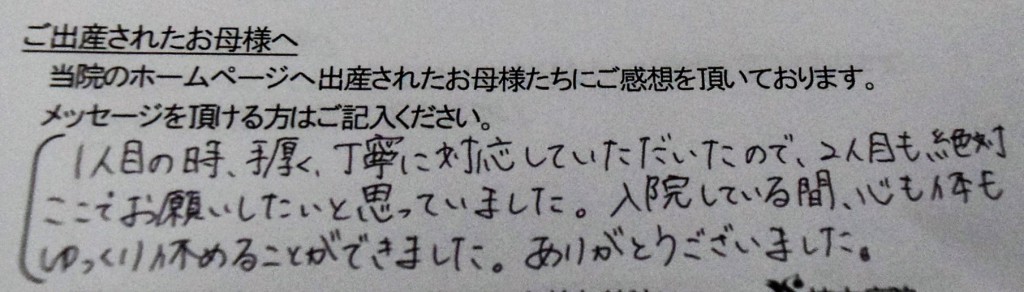 ご出産されたお母様へ
当院のホームページへ出産されたお母様たちにご感想を頂いております。
メッセージを頂ける方はご記入ください。
1人目の時、手厚く、丁寧に対応していただいたので、2人目も絶対
ここでお願いしたいと思っていました。入院している間、心も体も
ゆっくり休めることができました。ありがとうございました。